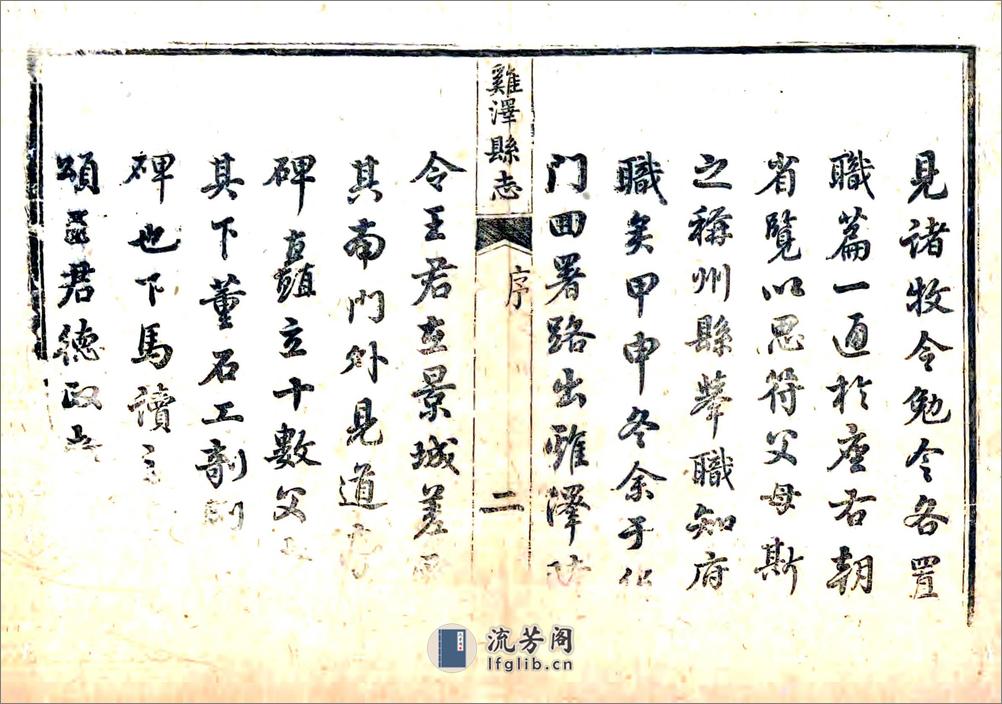 見諸牧令勉令各置
職篇一通於座右朝
省覽以思符父母斯
之稱州縣举職知府
職矣甲申冬余于
门回署路出雞澤
雞澤縣志
序
二
令王君
景城差
其南門外見道
碑直
立十數父
其下董石工剞
碑也下馬讀
頌
君德政
流芳阁
lfglib.cn